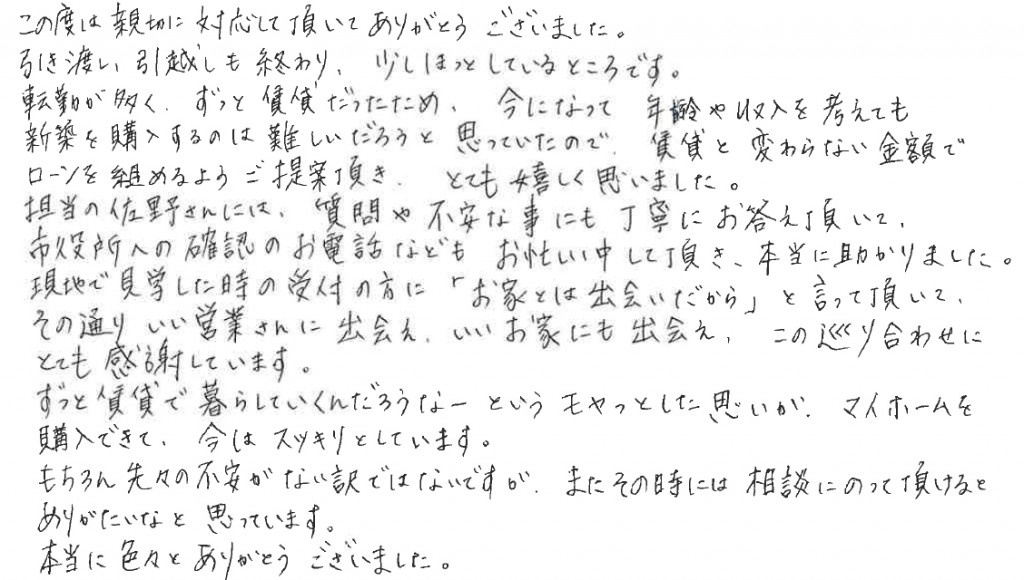 この度は親切に対応して頂いてありがとうございました。
引き渡し、引越しも終わり、少しほっとしているところです。
転勤が多く、ずっと賃貸だったため、今になって年齢や収入を考えても
新築を購入するのは難しいだろうと思っていたので、賃貸と変わらない金額で
ローンを組めるようご提案頂き、とても嬉しく思いました。
担当の佐野さんには、質問や不安な事にも丁寧にお答え頂いて、
市役所への確認のお電話などもお忙しい中して頂き、本当に助かりました。
現地で見学した時の受付の方に「お家とは出会いだから」と言って頂いて、
その通りいい営業さんに出会え、いいお家にも出会え、この巡り合わせに
とても感謝しています。
ずっと賃貸で暮らしていくんだろうなーというモヤっとした思いが、マイホームを
購入できて、今はスッキリとしています。
もちろん先々の不安がない訳ではないですが、またその時には相談にのって頂けると
ありがたいなと思っています。
本当に色々とありがとうございました。